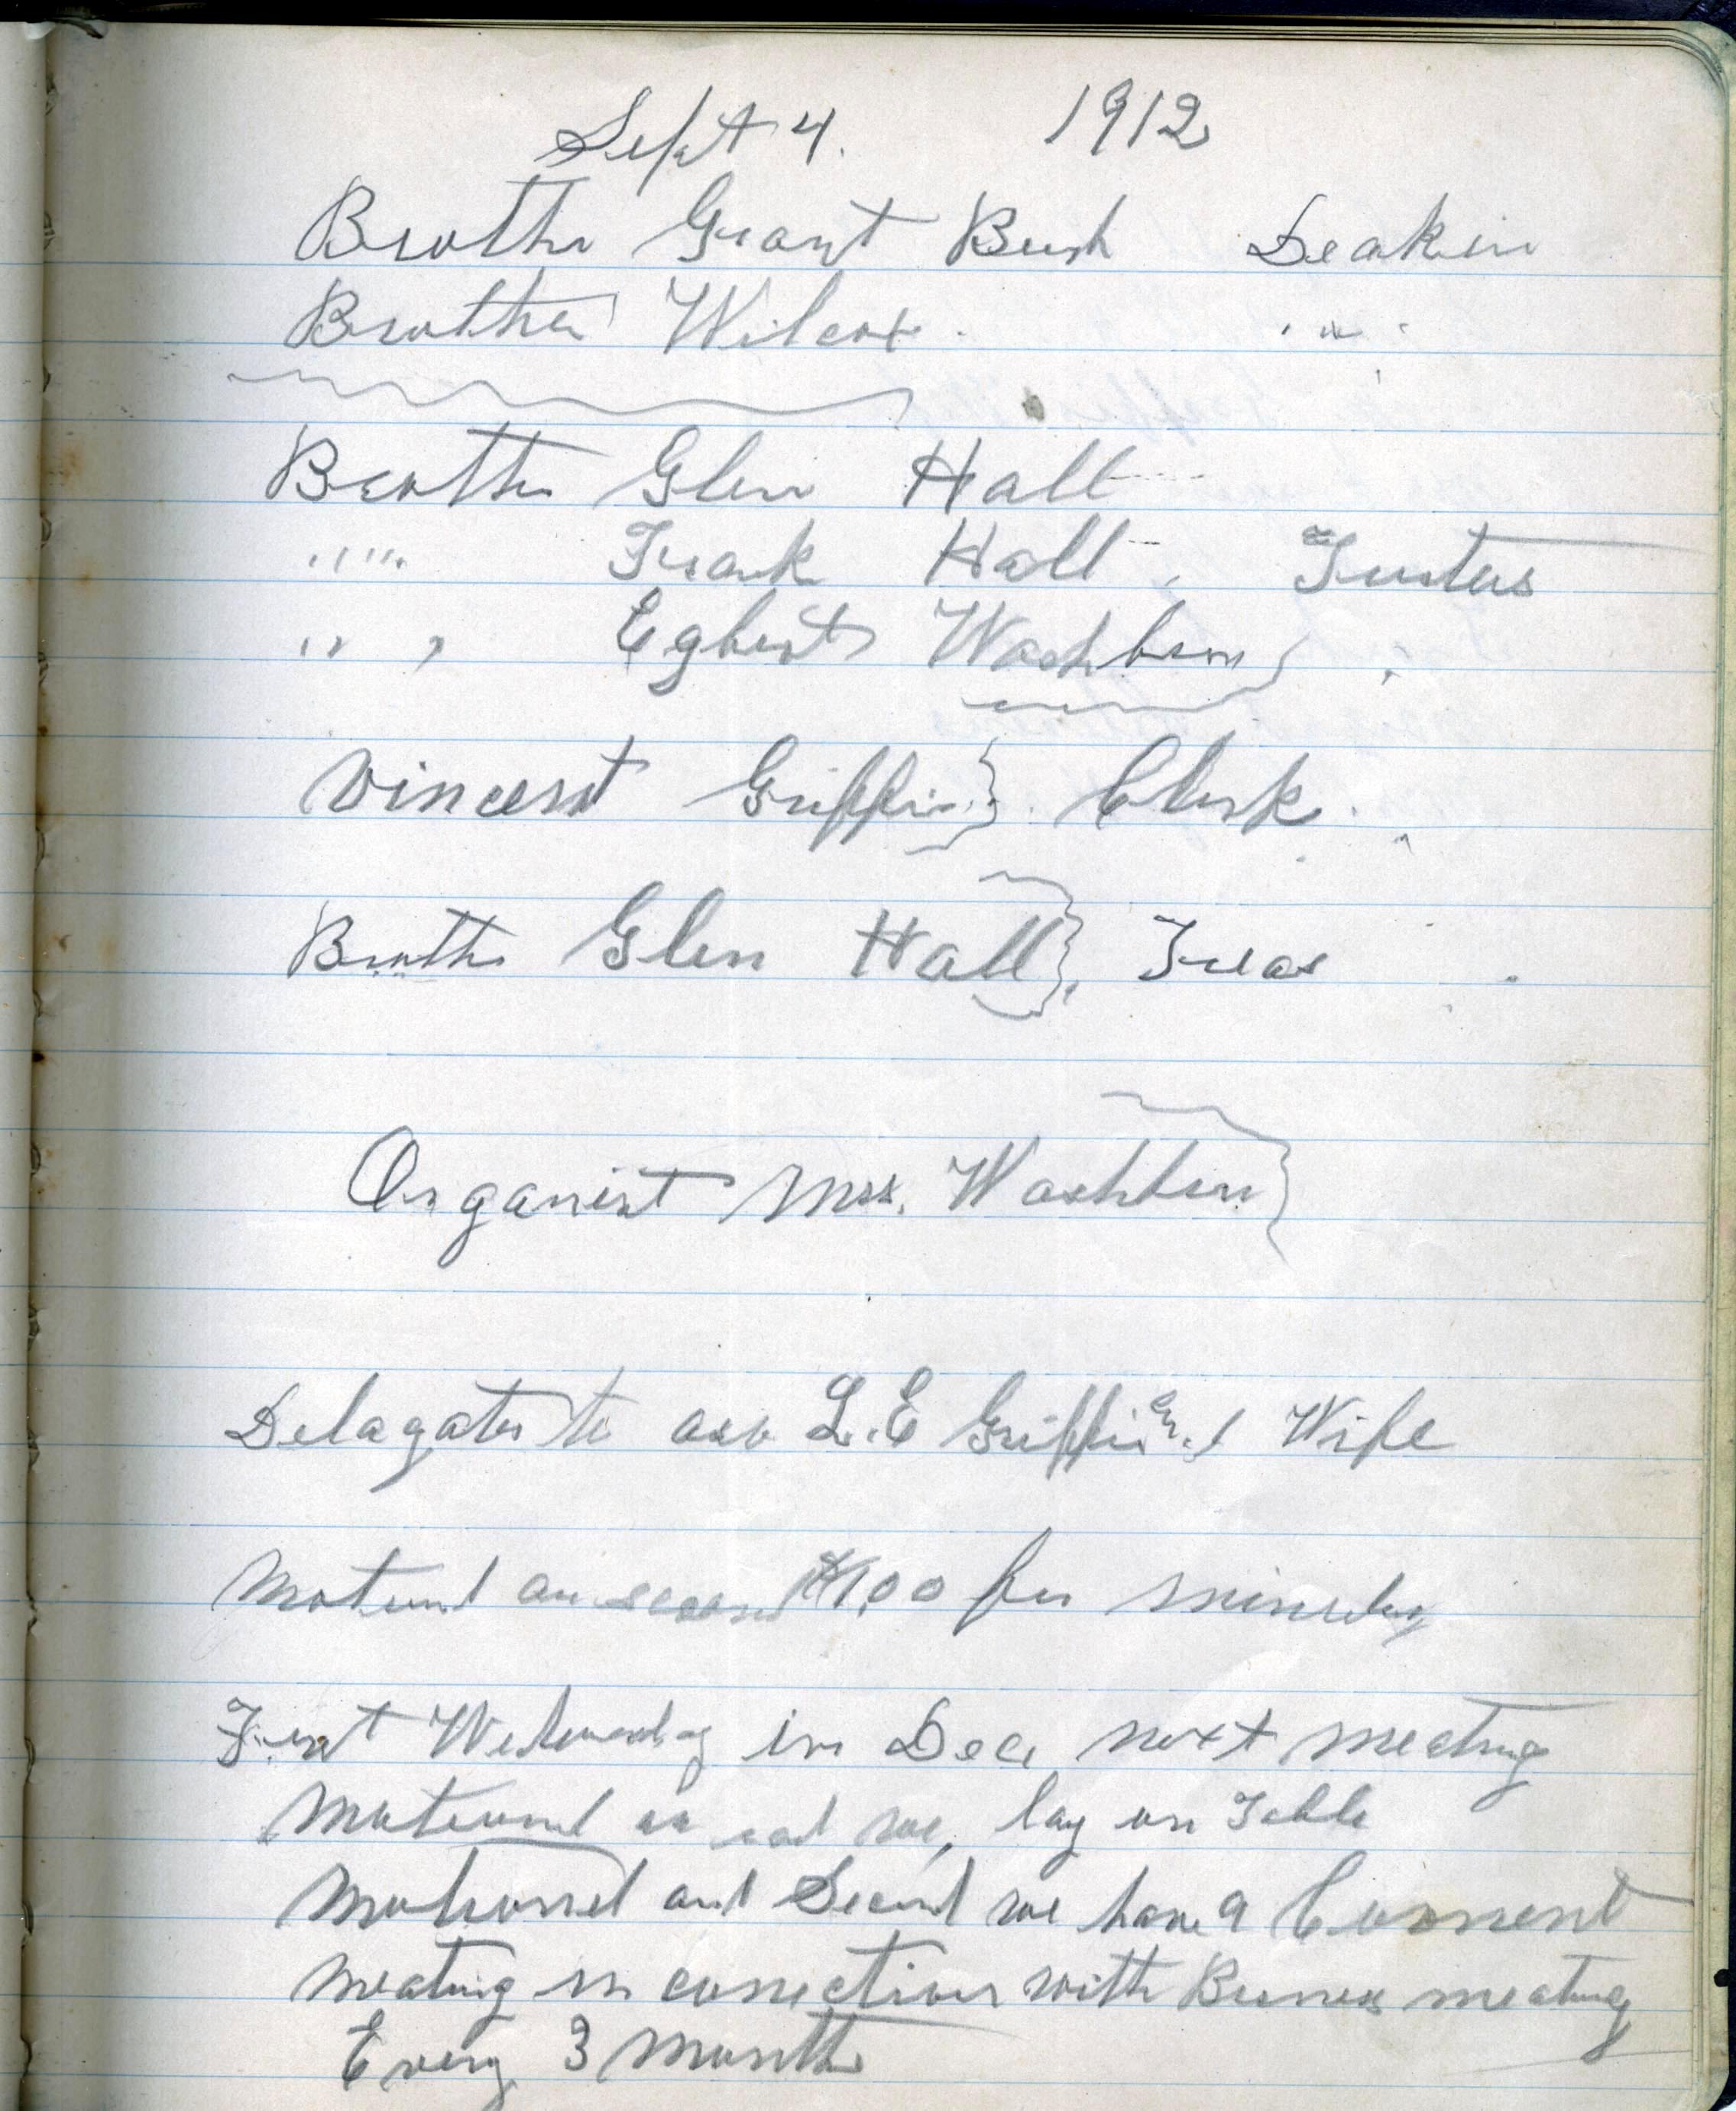 Sept 4. 1912
Brother Grant Bush Deakin
Brother Wilcox. " " "
Brother Glen Hall
" " " Frank Hall, Trustees
" " " Egbert Washburn
Vincent Griffin } Clerk.
Brother Glen Hall }, Treas
Organist Mrs. Washburn }
Delagates to L. E Griffin and Wife
Motiond an second 1.00 for
First Wednesday in Dec next meeting
Motiond we, lay on Table
Motioned and Second we have a Convent
meating in conection with meating
Every 3 Month